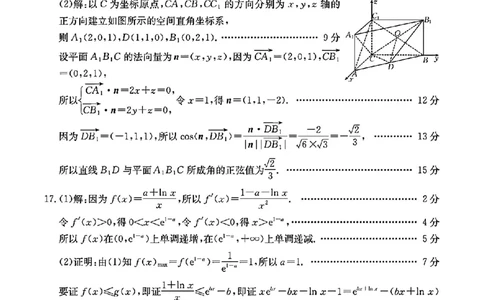 (2)解:以C为坐标原点,CA,CB,CC₁的方向分别为x,y,z轴的
正方向建立如图所示的空间直角坐标系,
则A₁(2,0,1),D(1,1,0),B₁(0,2,1). ………… 9分
设平面A₁B₁C的法向量为n=(x,y,z),因为CA₁=(2,0,1),CB₁
=(0,2,1),
所以{CA₁·n=2x+z=0, CB₁·n=2y+z=0, 令x=1,得n=(1,1,-2). ………… 12分
因为DB₁=(-1,1,1),所以cos⟨n,DB₁⟩=n·DB₁/|n||DB₁|=-2/(√6×√3)=-√2/3, ………… 13分
所以直线B₁D与平面A₁B₁C所成角的正弦值为√2/3. ………… 15分
17.(1)解:因为f(x)=(a+ln x)/x,所以f′(x)=(1-a-ln x)/x². ………… 2分
令f′(x)>0,得0<x<e^(1-a),令f′(x)<0,得x>e^(1-a), ………… 4分
所以f(x)在(0,e^(1-a))上单调递增,在(e^(1-a),+∞)上单调递减. ………… 5分
(2)证明:由(1)知f(x)max=f(e^(1-a))=1/e^(1-a)=1,所以a=1. ………… 7分
要证f(x)≤g(x),即证(1+ln x)/x≤e^(bx)-b,即证xe^(bx)-bx-ln x-1=e^(bx+ln x)-(bx+ln x)
z
C₁
B₁
A₁
O
C
D
B
y
A
x